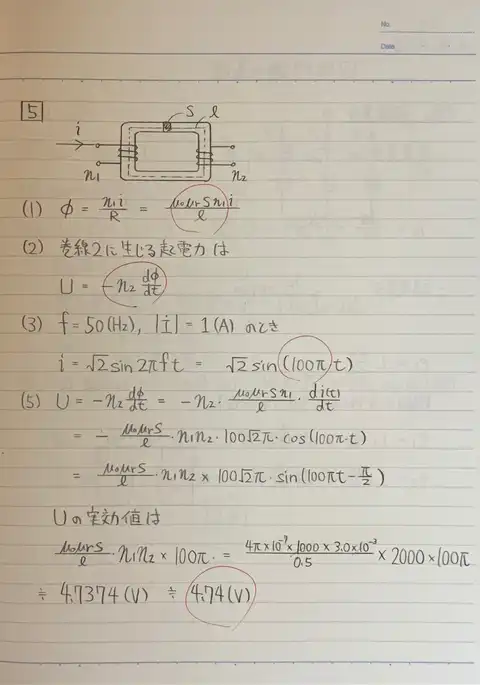 No.
Date
5
S
l
i
n₁
n₂
(1) Φ = n₁i/R = μ₀μrSn₁i/l
(2) 巻線2に生じる起電力は
U = -n₂ dΦ/dt
(3) f = 50(Hz), |İ| = 1(A) のとき
i = √2 sin 2πft = √2 sin(100πt)
(5) U = -n₂ dΦ/dt = -n₂・μ₀μrSn₁/l・di(t)/dt
= - μ₀μrS/l・n₁n₂・100√2π・cos(100π・t)
= μ₀μrS/l・n₁n₂ × 100√2π・sin(100πt - π/2)
Uの実効値は
μ₀μrS/l・n₁n₂ × 100π・= 4π×10⁻⁷×1000×3.0×10⁻³/0.5 × 2000 × 100π
≒ 4.7374(V) ≒ 4.74(V)